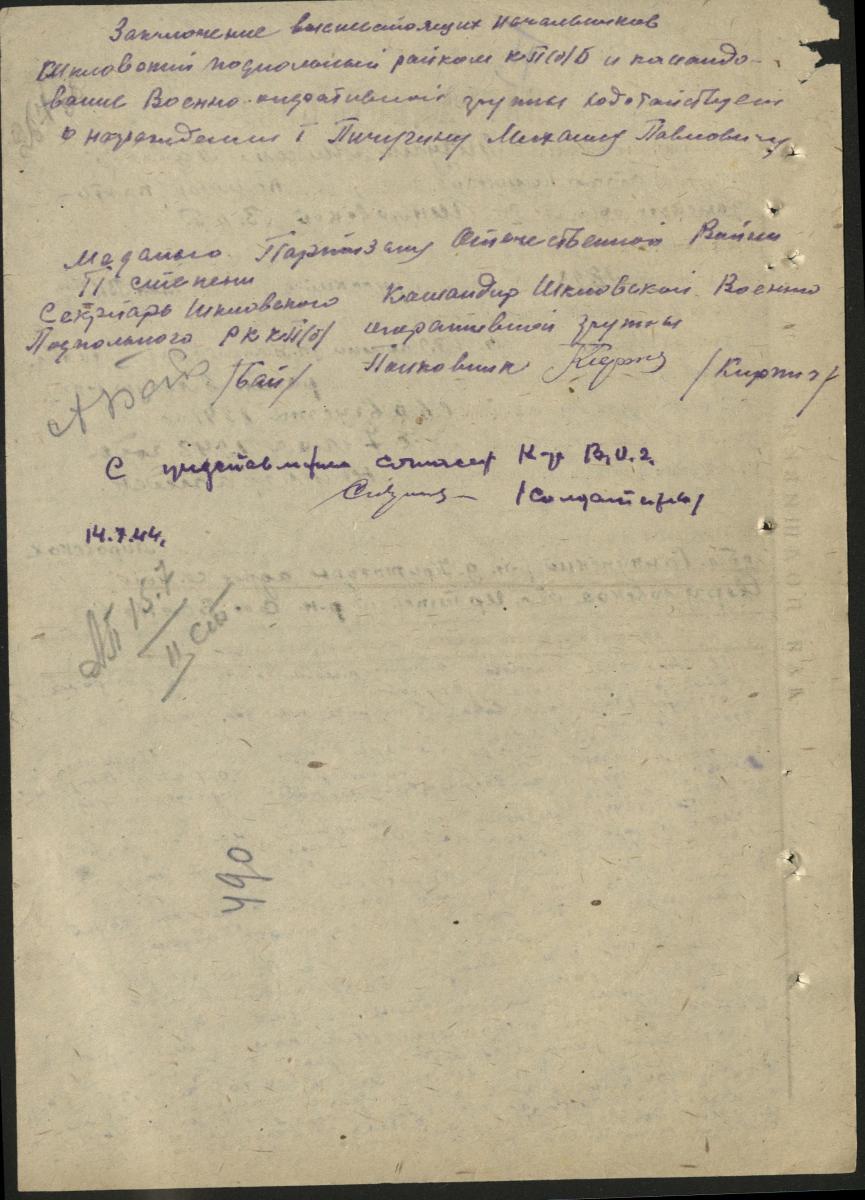 Заключение вышестоящих начальников
Шкловский подпольный райком КП(б)Б и командо-
вание Военно-оперативной группы ходотайствует
о награждении т Пичугину Михаилу Павловичу
Медалью Партизану Отечественной Войны
II степени
Секретарь Шкловского Командир Шкловской Военно
Подпольного РК КП(б) оперативной группы
/Бай/ Полковник /Кирпич/
С представлением согласен К-р В.О.г.
14.7.44.
15.7
II ст.
490